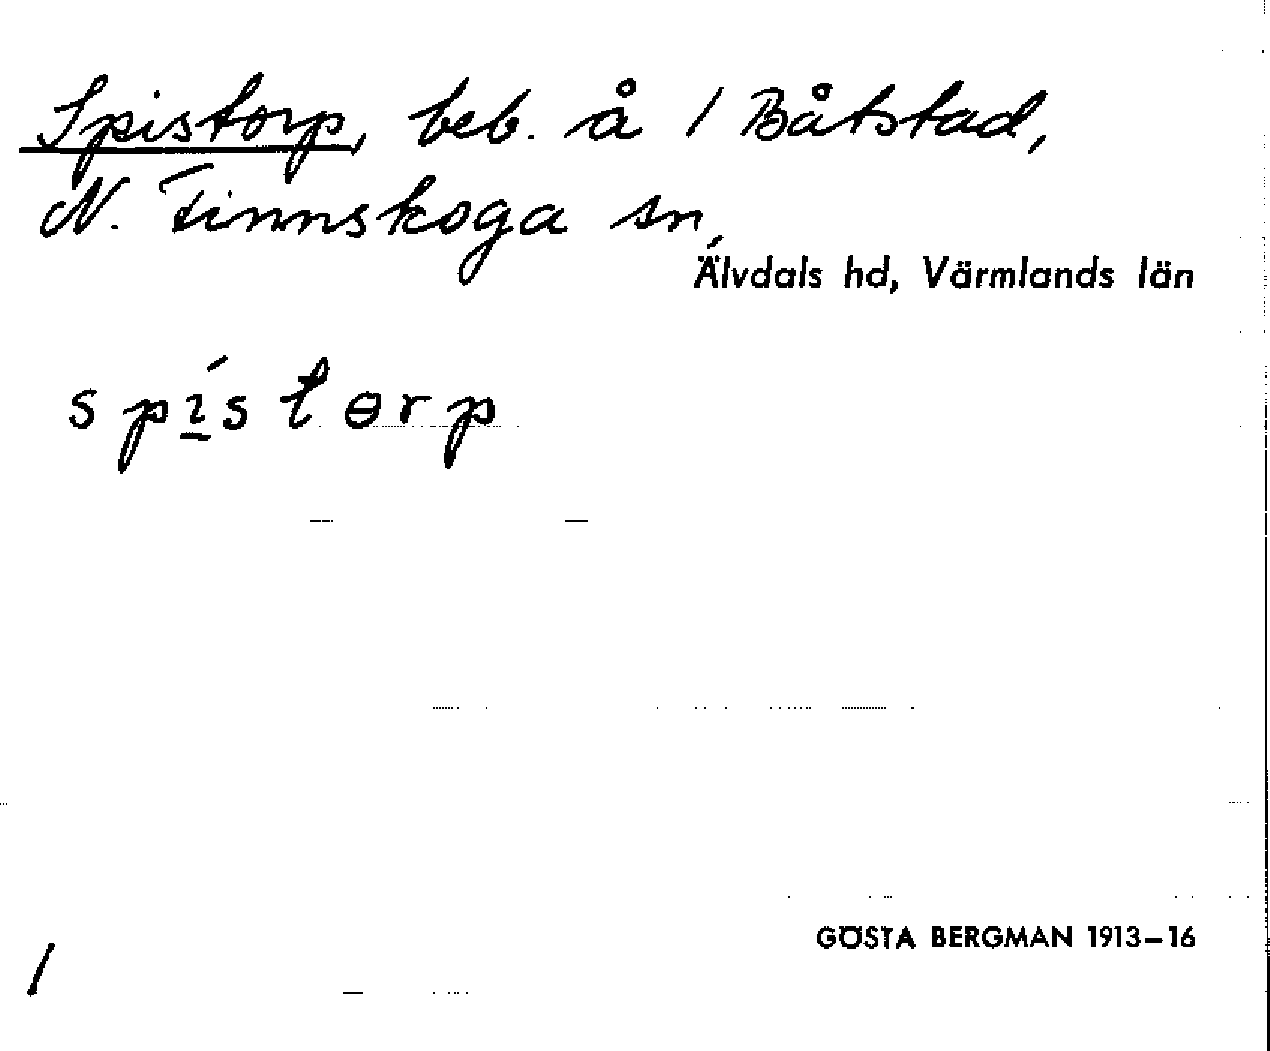 Spistorp, beb. å 1 Båtstad,
N. Finnskoga sn,
Älvdals hd, Värmlands län
spí̲stɵrp
GÖSTA BERGMAN 1913–16
1